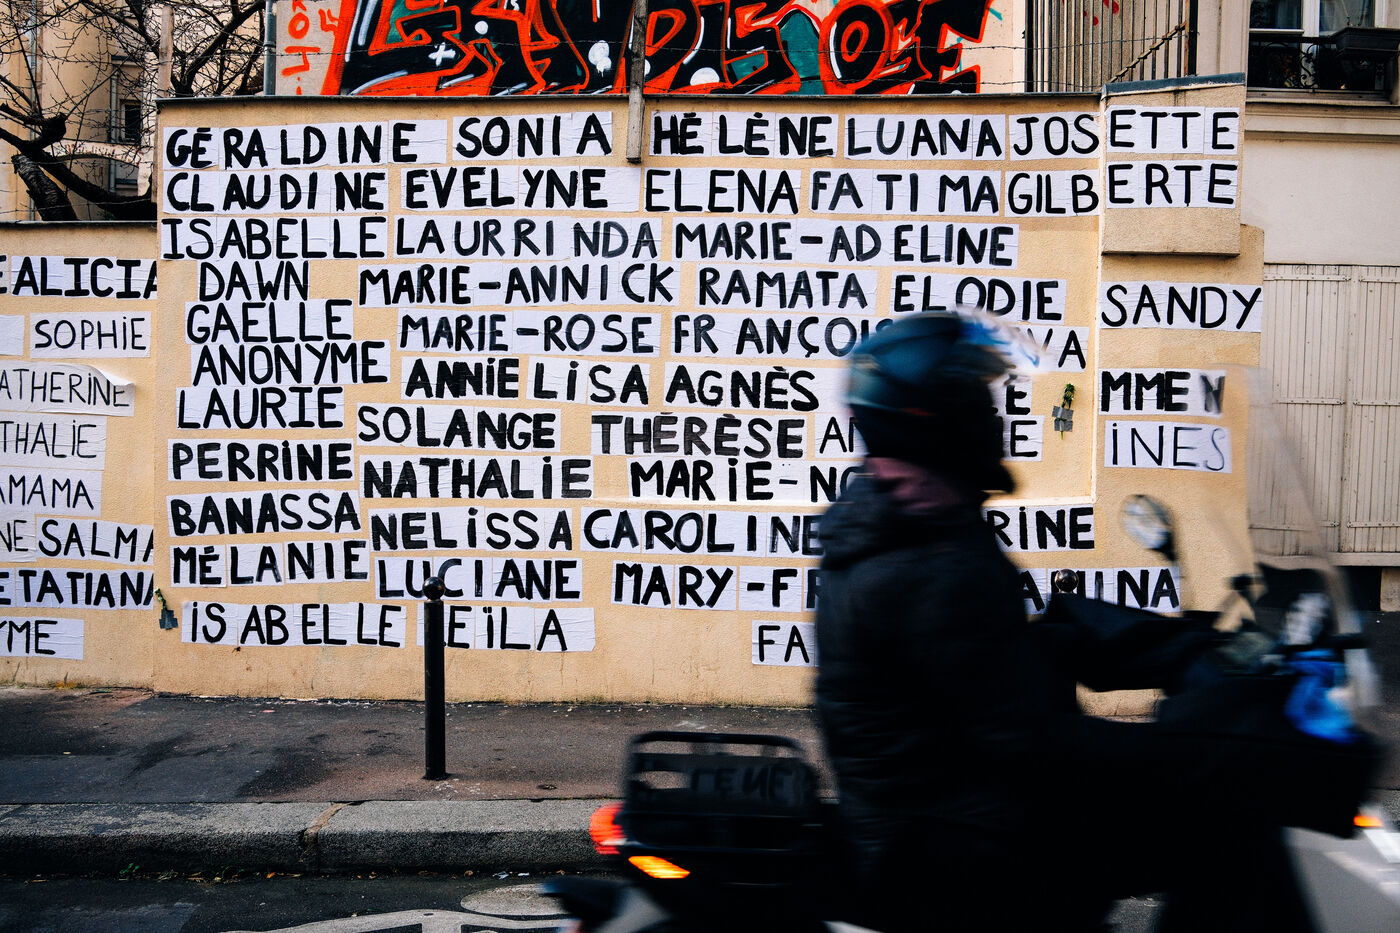 GÉRALDINE SONIA HÉLÈNE LUANA JOSETTE
CLAUDINE EVELYNE ELENA FATIMA GILBERTE
ISABELLE LAURRINDA MARIE-ADELINE
ALICIA DAWN MARIE-ANNICK RAMATA ELODIE SANDY
SOPHIE GAELLE MARIE-ROSE FRANÇOIS VA
ANONYME ANNIE LISA AGNÈS E MMEN
ATHERINE LAURIE SOLANGE THÉRÈSE A E INES
THALIE PERRINE NATHALIE MARIE-NO
AMAMA BANASSA NELISSA CAROLINE RINE
NE SALMA MÉLANIE LUCIANE MARY-FR NA
E TATIANA ISABELLE LEÏLA FA
YME